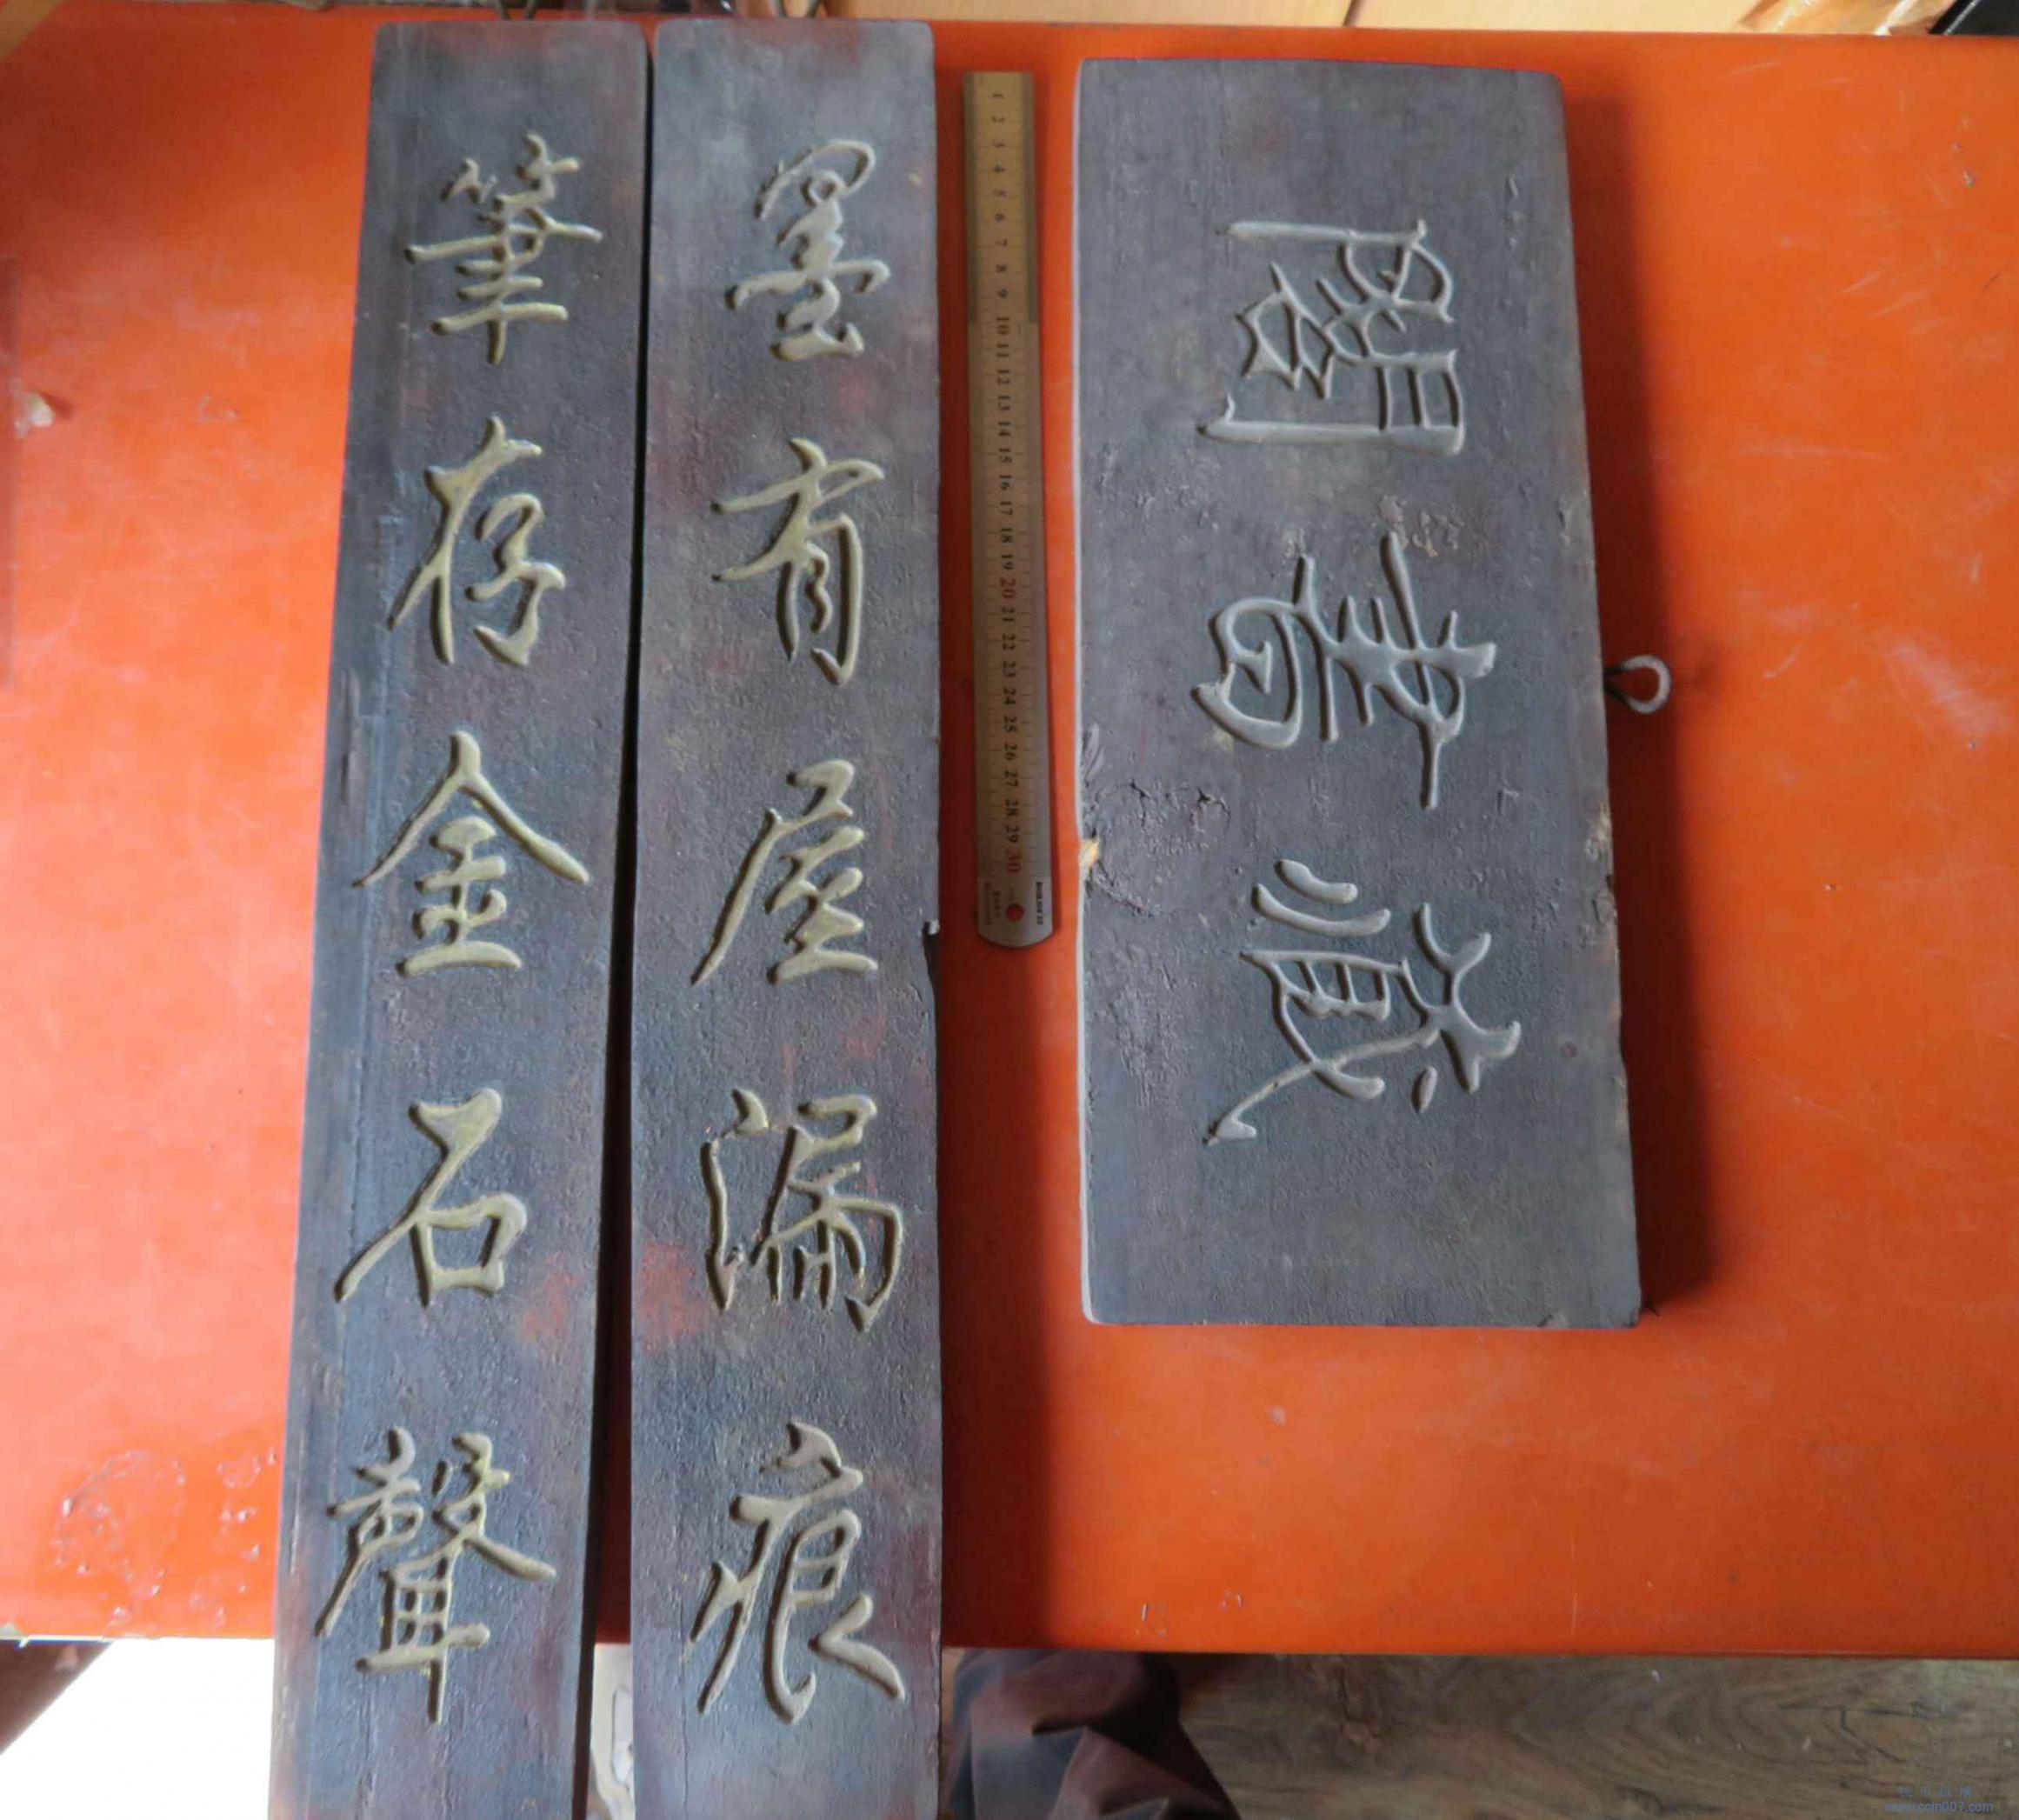 墨有屋漏痕
筆存金石聲
閣書藏
1 2 3 4 5 6 7 8 9 10 11 12 13 14 15 16 17 18 19 20 21 22 23 24 25 26 27 28 29 30
www.coin007.com